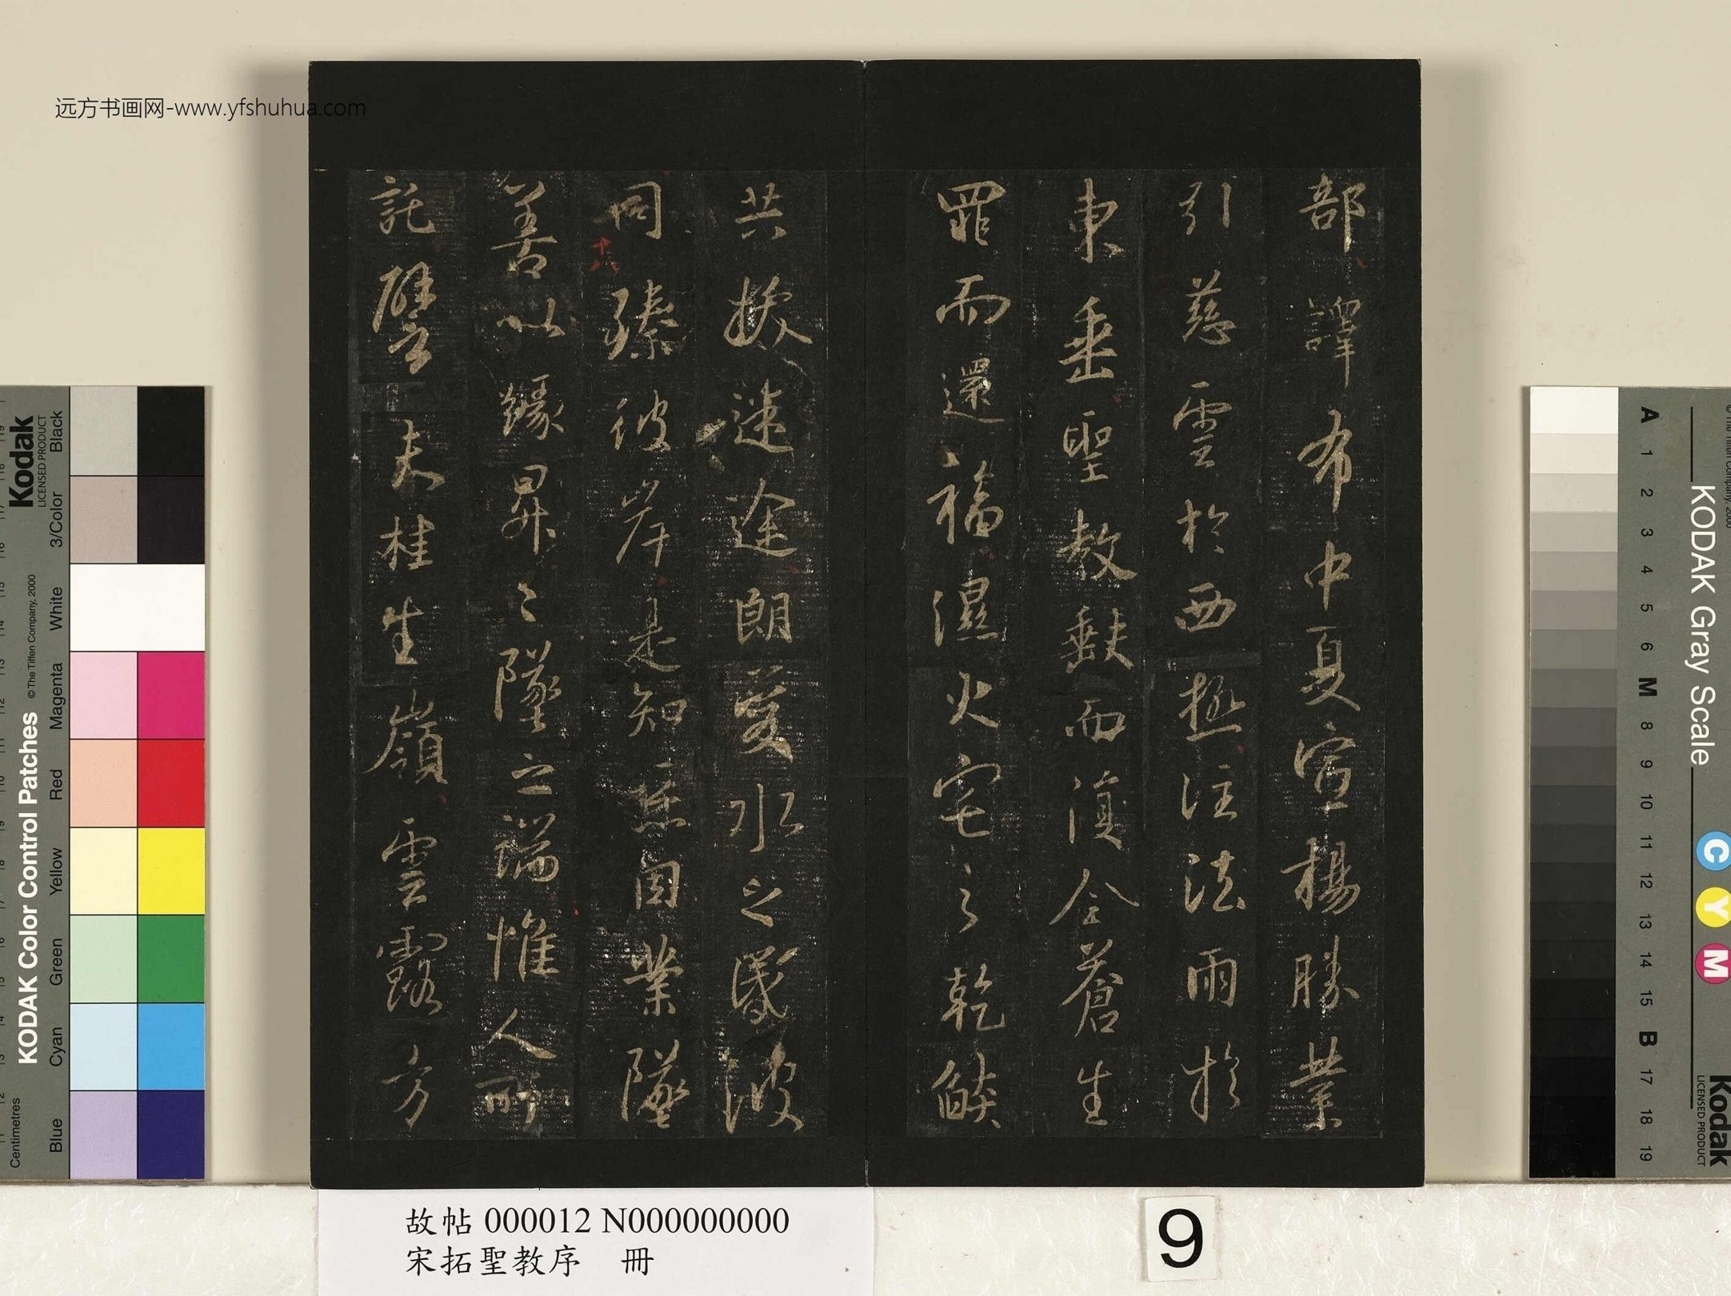 远方书画网-www.yfshuhua.com
部譯布中夏宣楊勝業
引慈雲於西極注法雨於
東垂聖教缺而復全蒼生
罪而還福濕火宅之乾燄
共拔迷途朗愛水之昏波
同臻彼岸是知惡因業墜
十六
善以緣昇々墜之端惟人所
託譬夫桂生嶺雲露方
故帖 000012 N000000000
宋拓聖教序 冊
9
Kodak
LICENSED PRODUCT
KODAK Color Control Patches
© The Tiffen Company, 2000
Centimetres
Blue
Cyan
Green
Yellow
Red
Magenta
White
3/Color
Black
KODAK Gray Scale
A 1 2 3 4 5 6 M 8 9 10 11 12 13 14 15 B 17 18 19
C
Y
M
Kodak
LICENSED PRODUCT